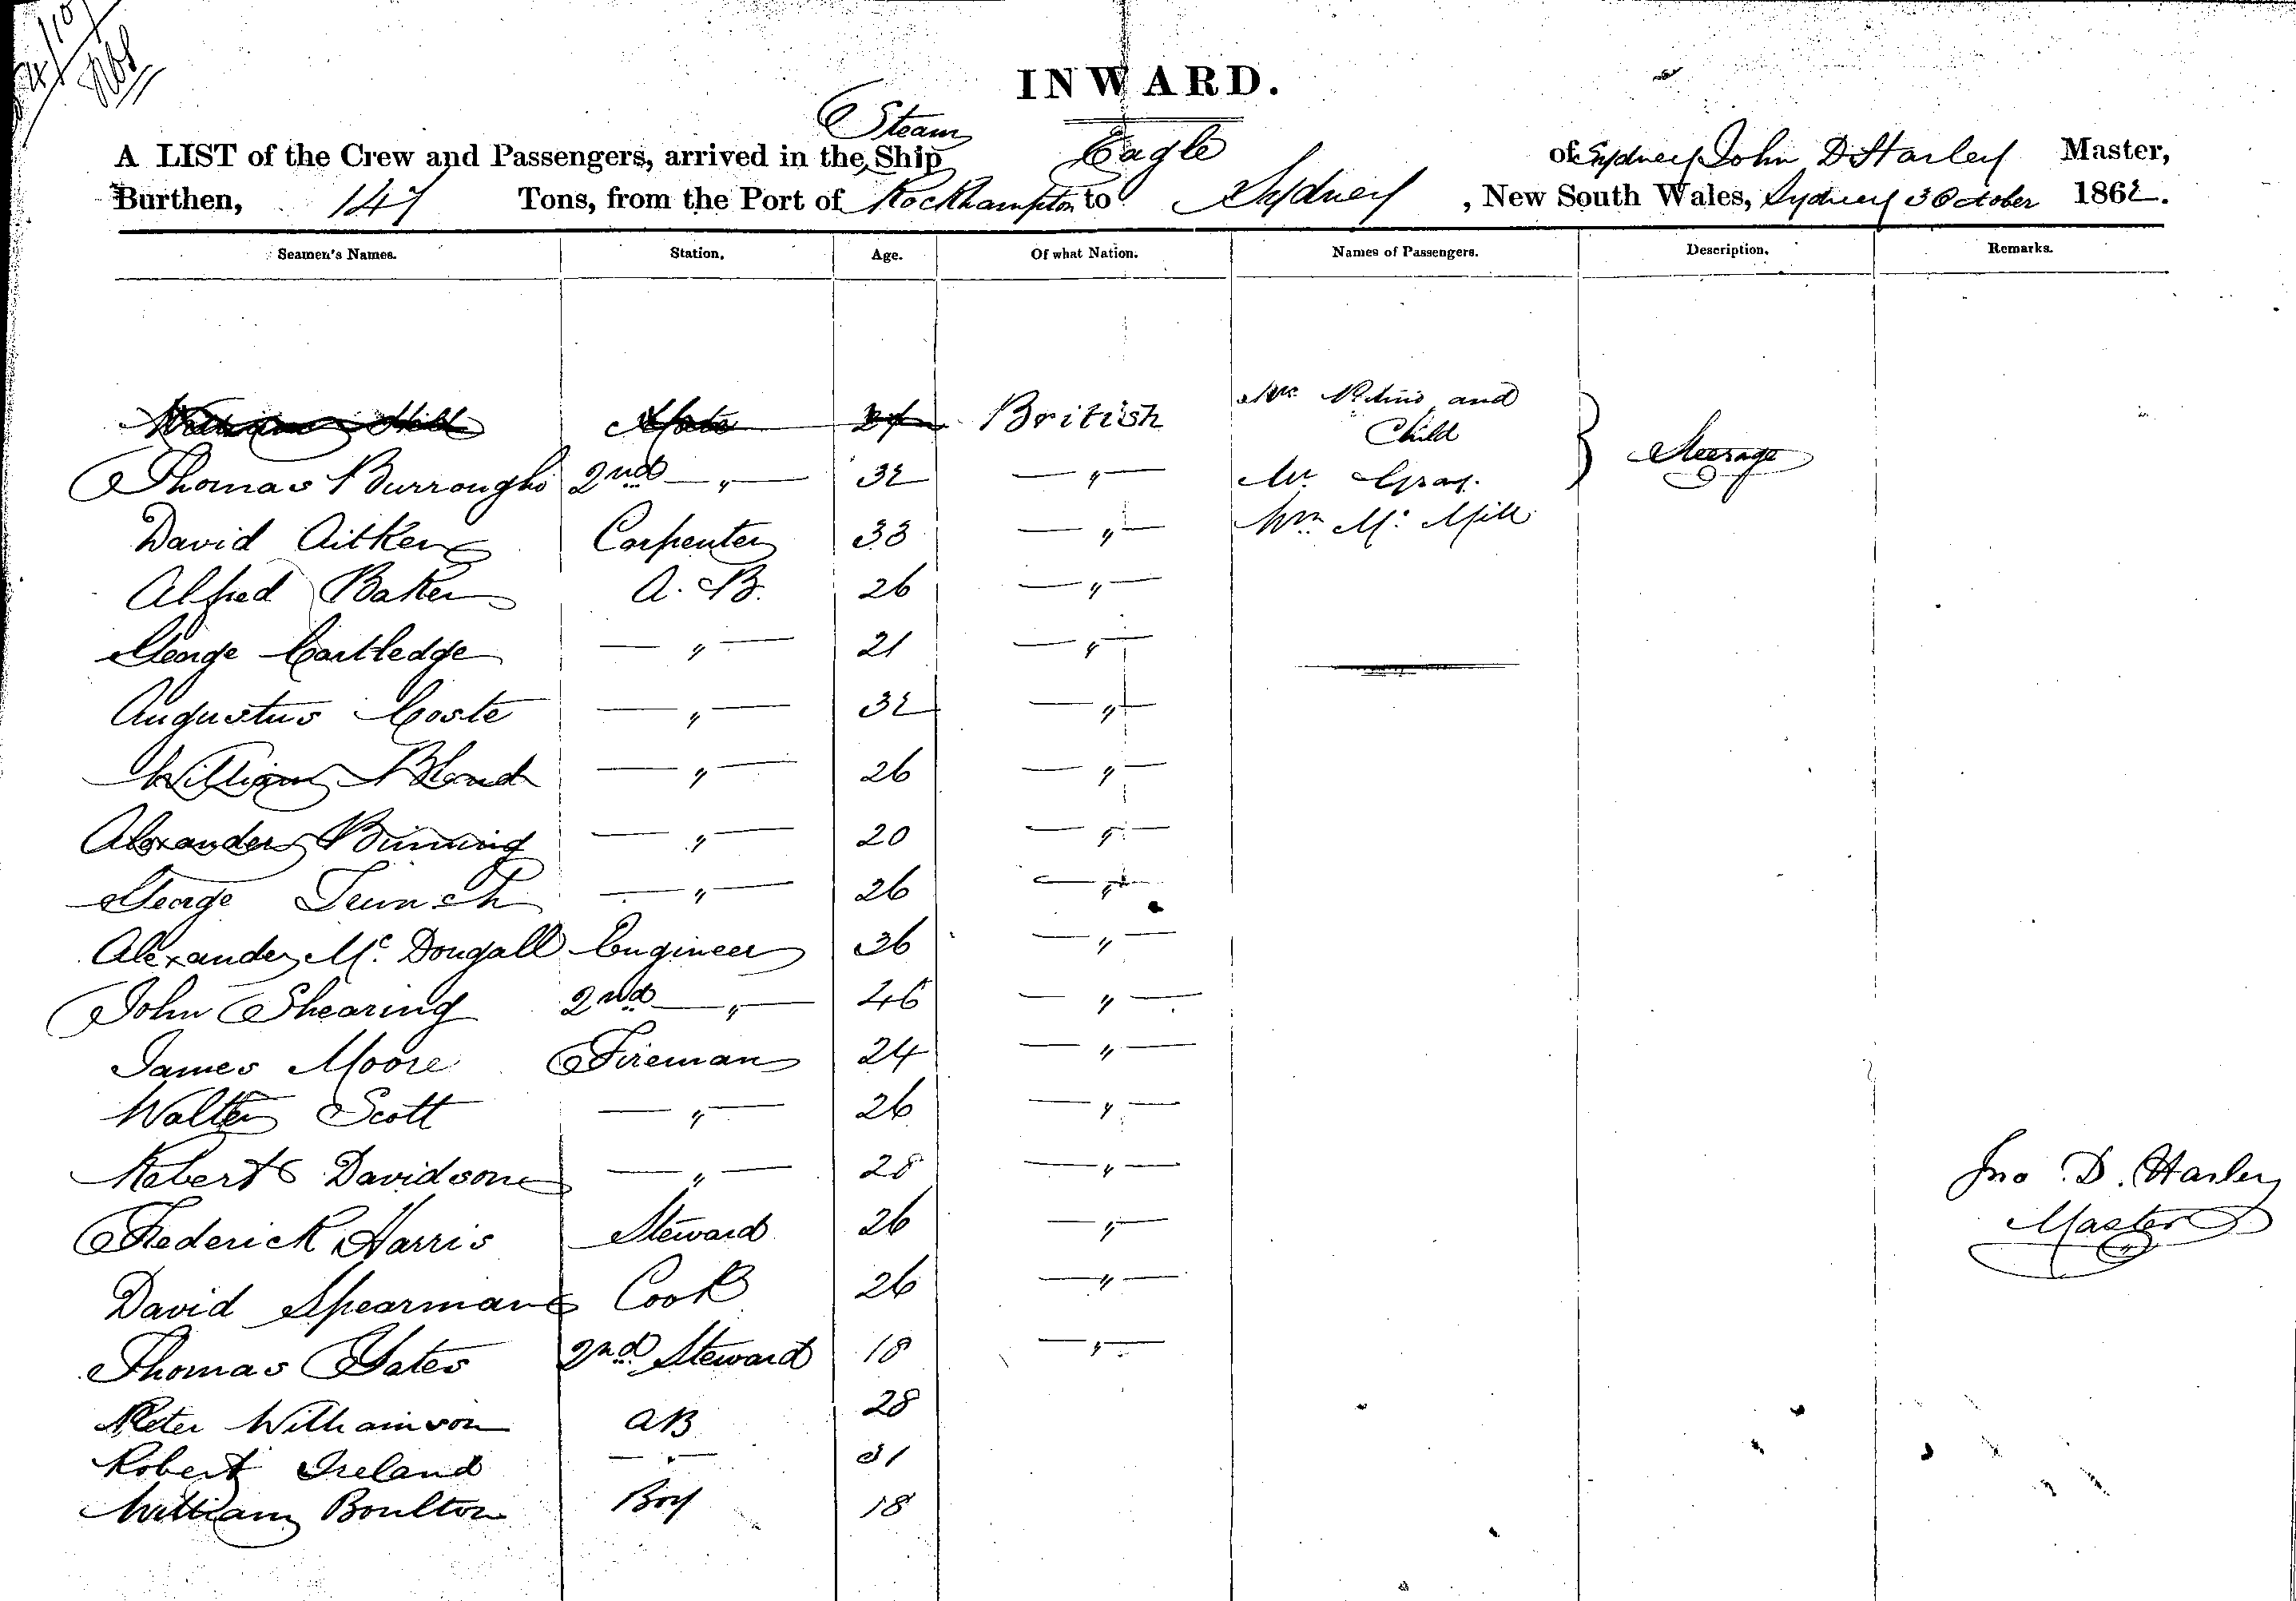 INWARD.
Steam
A LIST of the Crew and Passengers, arrived in the Ship Eagle of Sydney John D Harley Master,
Burthen, 147 Tons, from the Port of Rockhampton to Sydney, New South Wales, Sydney 3 October 1862.
Seamen's Names. Station. Age. Of what Nation. Names of Passengers. Description. Remarks.
William Hill Mate British Mrs and
Child
Thomas Burroughs 2nd " 32 " Mr Gray. Steerage
David Aitken Carpenter 33 " Wm Mc Mill
Alfred Baker A. B. 26 "
George Cartledge " 21 "
Augustus Coste " 32 "
William Bland " 26 "
Alexander Binning " 20 "
George " 26 "
Alexander Mc Dougall Engineer 36 "
John Shearing 2nd " 46 "
James Moore Fireman 24 "
Walter Scott " 26 "
Robert Davidson " 28 "
Jno. D. Harley
Frederick Harris Steward 26 "
Master
David Spearman Cook 26 "
Thomas Yates 2nd Steward 18 "
Peter Williamson AB 28
Robert Ireland " 31
William Boulton Boy 18